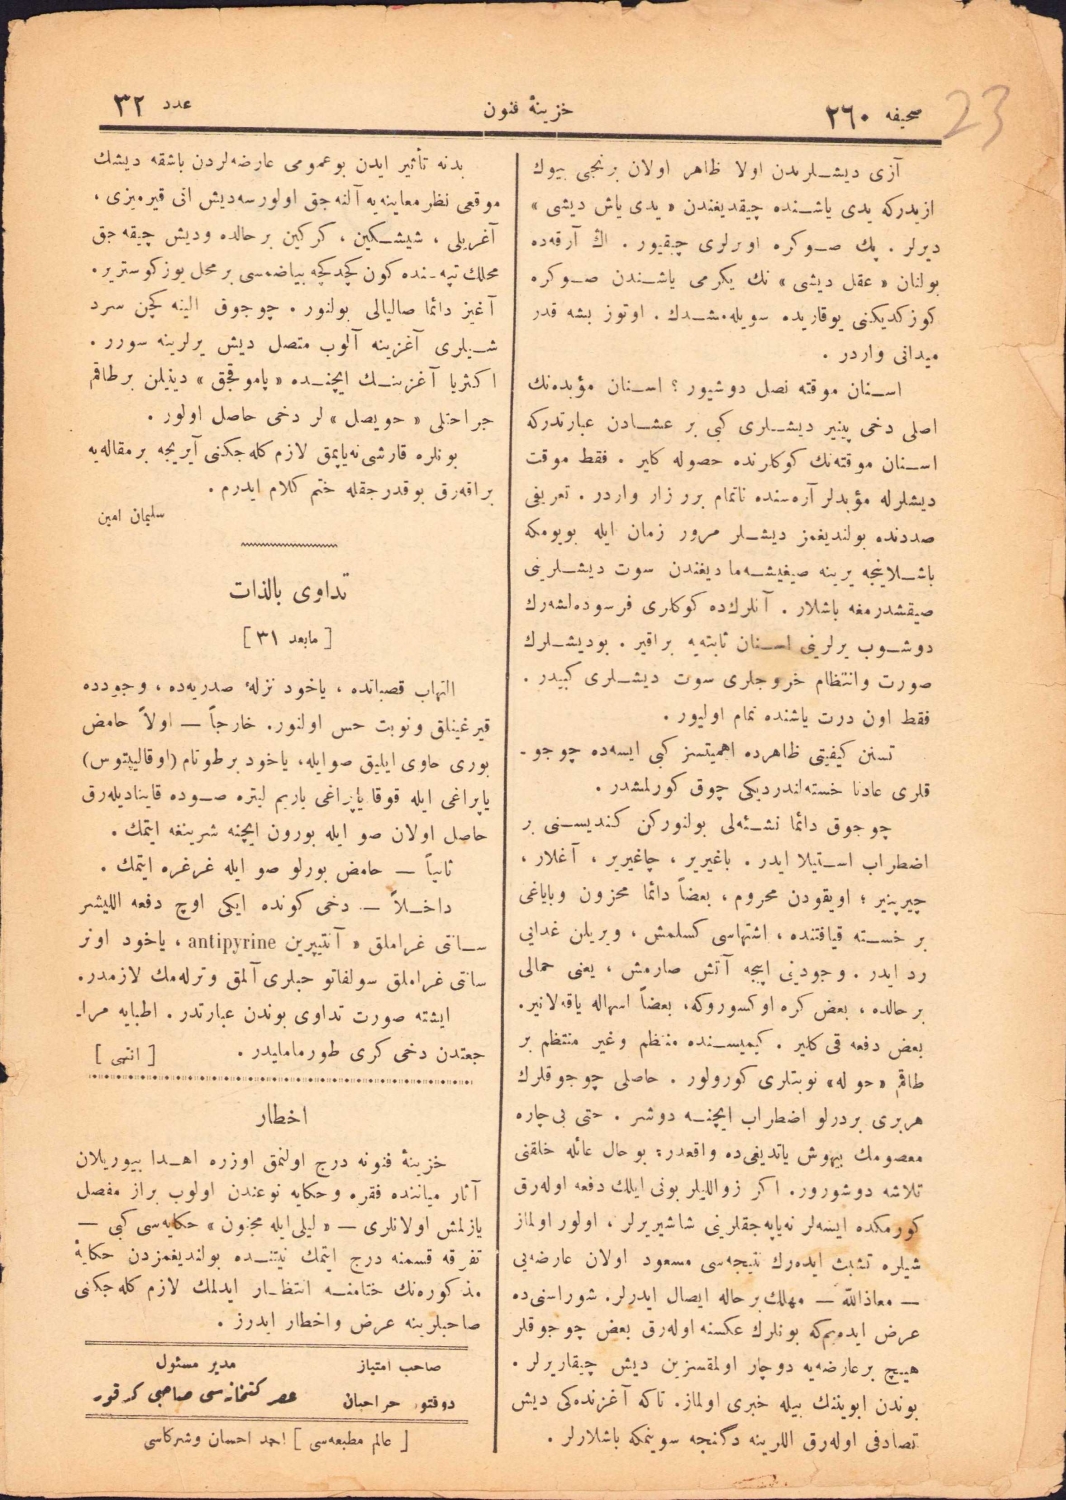 صحیفه ٢٦٠
خزینهٔ فنون
عدد ٣٢
23
آزی دیشلریدن اولا ظاهر اولان برنجی بیوك
ازیدركه یدی یاشنده چیقدیغندن « یدی یاش دیشی »
دیرلر . پك صوكره اوبرلری چیقیور . اڭ آرقه‌ده
بولنان « عقل دیشی » نك یكرمی یاشندن صوكره
كوزكدیكنی یوقاریده سویله‌مشدك . اوتوز بشه قدر
میدانی واردر .
اسنان موقته نصل دوشیور ؟ اسنان مؤبده‌نك
اصلی دخی پینیر دیشلری كبی بر عشادن عبارتدركه
اسنان موقته‌نك كوكلرنده حصوله كلیر . فقط موقت
دیشلرله مؤبدلر آره‌سنده ناتمام برر زار واردر . تعریفی
صددنده بولندیغمز دیشلر مرور زمان ایله بویومكه
باشلاینجه یرینه صیغیشه‌مادیغندن سوت دیشلرینی
صیقشدرمغه باشلار . آنلرك‌ده كوكلری فرسوده‌لشه‌رك
دوشوب یرلرینی اسنان ثابته‌یه براقیر . بودیشلرك
صورت وانتظام خروجلری سوت دیشلری كبیدر .
فقط اون درت یاشنده تمام اولیور .
تسنن كیفیتی ظاهرده اهمیتسز كبی ایسه‌ده چوجو-
قلری عادتا خسته‌لندردیكی چوق كورلمشدر .
چوجوق دائما نشئه‌لی بولنوركن كندیسنی بر
اضطراب استیلا ایدر . باغیریر ، چاغیریر ، آغلار ،
چیرپنیر ؛ اویقودن محروم ، بعضاً دائما محزون وبایاغی
بر خسته قیافتنده ، اشتهاسی كسلمش ، ویریلن غدایی
رد ایدر . وجودینی ایجه آتش صارمش ، یعنی حمالی
برحالده ، بعض كره اوكسوروكه، بعضاً اسهاله یاقه‌لانیر.
بعض دفعه قی كلیر . كیمیسنده منتظم وغیر منتظم بر
طاقم «حوله» نوبتلری كورولور . حاصلی چوجوقلرك
هربری بردرلو اضطراب ایچنه دوشر . حتی بی‌چاره
معصومك بیهوش یاتدیغی‌ده واقعدر؛ بوحال عائله خلقنی
تلاشه دوشورور. اكر زواللیلر بونی ایلك دفعه اوله‌رق
كورمكده ایسه‌لر نه‌یاپه‌جقلرینی شاشیریرلر ، اولور اولماز
شیلره تشبث ایده‌رك نتیجه‌سی مسعود اولان عارضه‌یی
— معاذالله — مهلك برحاله ایصال ایدرلر. شوراسنی‌ده
عرض ایده‌یم‌كه بونلرك عكسنه اوله‌رق بعض چوجوقلر
هییچ برعارضه‌یه دوچار اولمقسزین دیش چیقاریرلر .
بوندن ابویننك بیله خبری اولماز. تاكه آغزنده‌كی دیش
تصادفی اوله‌رق اللرینه دكنجه سوینمكه باشلارلر .
بدنه تأثیر ایدن بوعمومی عارضه‌لردن باشقه دیشك
موقعی نظر معاینه‌یه آلنه‌جق اولورسه‌دیش اتی قیرمیزی ،
آغریلی ، شیشكین ، كركین برحالده ودیش چیقه‌جق
محلك تپه‌سنده كون كچدكچه بیاضمسی برمحل یوزكوستریر.
آغیز دائما صالیالی بولنور . چوجوق الینه كچن سرد
شیلری آغزینه آلوب متصل دیش یرلرینه سورر .
اكثریا آغزینك ایچنده « پاموقجق » دینیلن برطاقم
جراحتلی « حویصل » لر دخی حاصل اولور .
بونلره قارشی‌نه‌یاپمق لازم كله‌جكنی آیریجه برمقاله‌یه
براقه‌رق بوقدرجقله ختم كلام ایدرم .
سلیمان امین
تداوی بالذات
[ مابعد ٣١ ]
التهاب قصباتده ، یاخود نزلهٔ صدریه‌ده ، وجودده
قیرغینلق ونوبت حس اولنور. خارجاً — اولاً حامض
بوری حاوی ایلیق صوایله، یاخود برطوتام (اوقالیپتوس)
یاپراغی ایله قوقا یاپراغی یاریم لیتره صوده قاینادیله‌رق
حاصل اولان صو ایله بورون ایچنه شرینغه ایتمك .
ثانیاً — حامض بورلو صو ایله غرغره ایتمك .
داخلاً — دخی كونده ایكی اوچ دفعه اللیشر
سانتی غراملق « آنتیپرین antipyrine ، یاخود اونر
سانتی غراملق سولفاتو حبلری آلمق وترله‌مك لازمدر.
ایشته صورت تداوی بوندن عبارتدر . اطبایه مرا-
جعتدن دخی كری طورمامایدر . [ انتهی ]
اخطار
خزینهٔ فنونه درج اولنمق اوزره اهدا بیوریلان
آثار میاننده فقره وحكایه نوعندن اولوب براز مفصل
یازلمش اولانلری — « لیلی‌ایله مجنون » حكایه‌سی كبی —
تفرقه قسمنه درج ایتمك نیتنده بولندیغمزدن حكایهٔ
مذكوره‌نك ختامنه انتظار ایدلمك لازم كله‌جكنی
صاحبلرینه عرض واخطار ایدرز .
صاحب امتیاز
مدیر مسئول
دوقتور
عصر كتبخانه‌سی صاحبی كرقور
[ عالم مطبعه‌سی ] احمد احسان وشركاسی